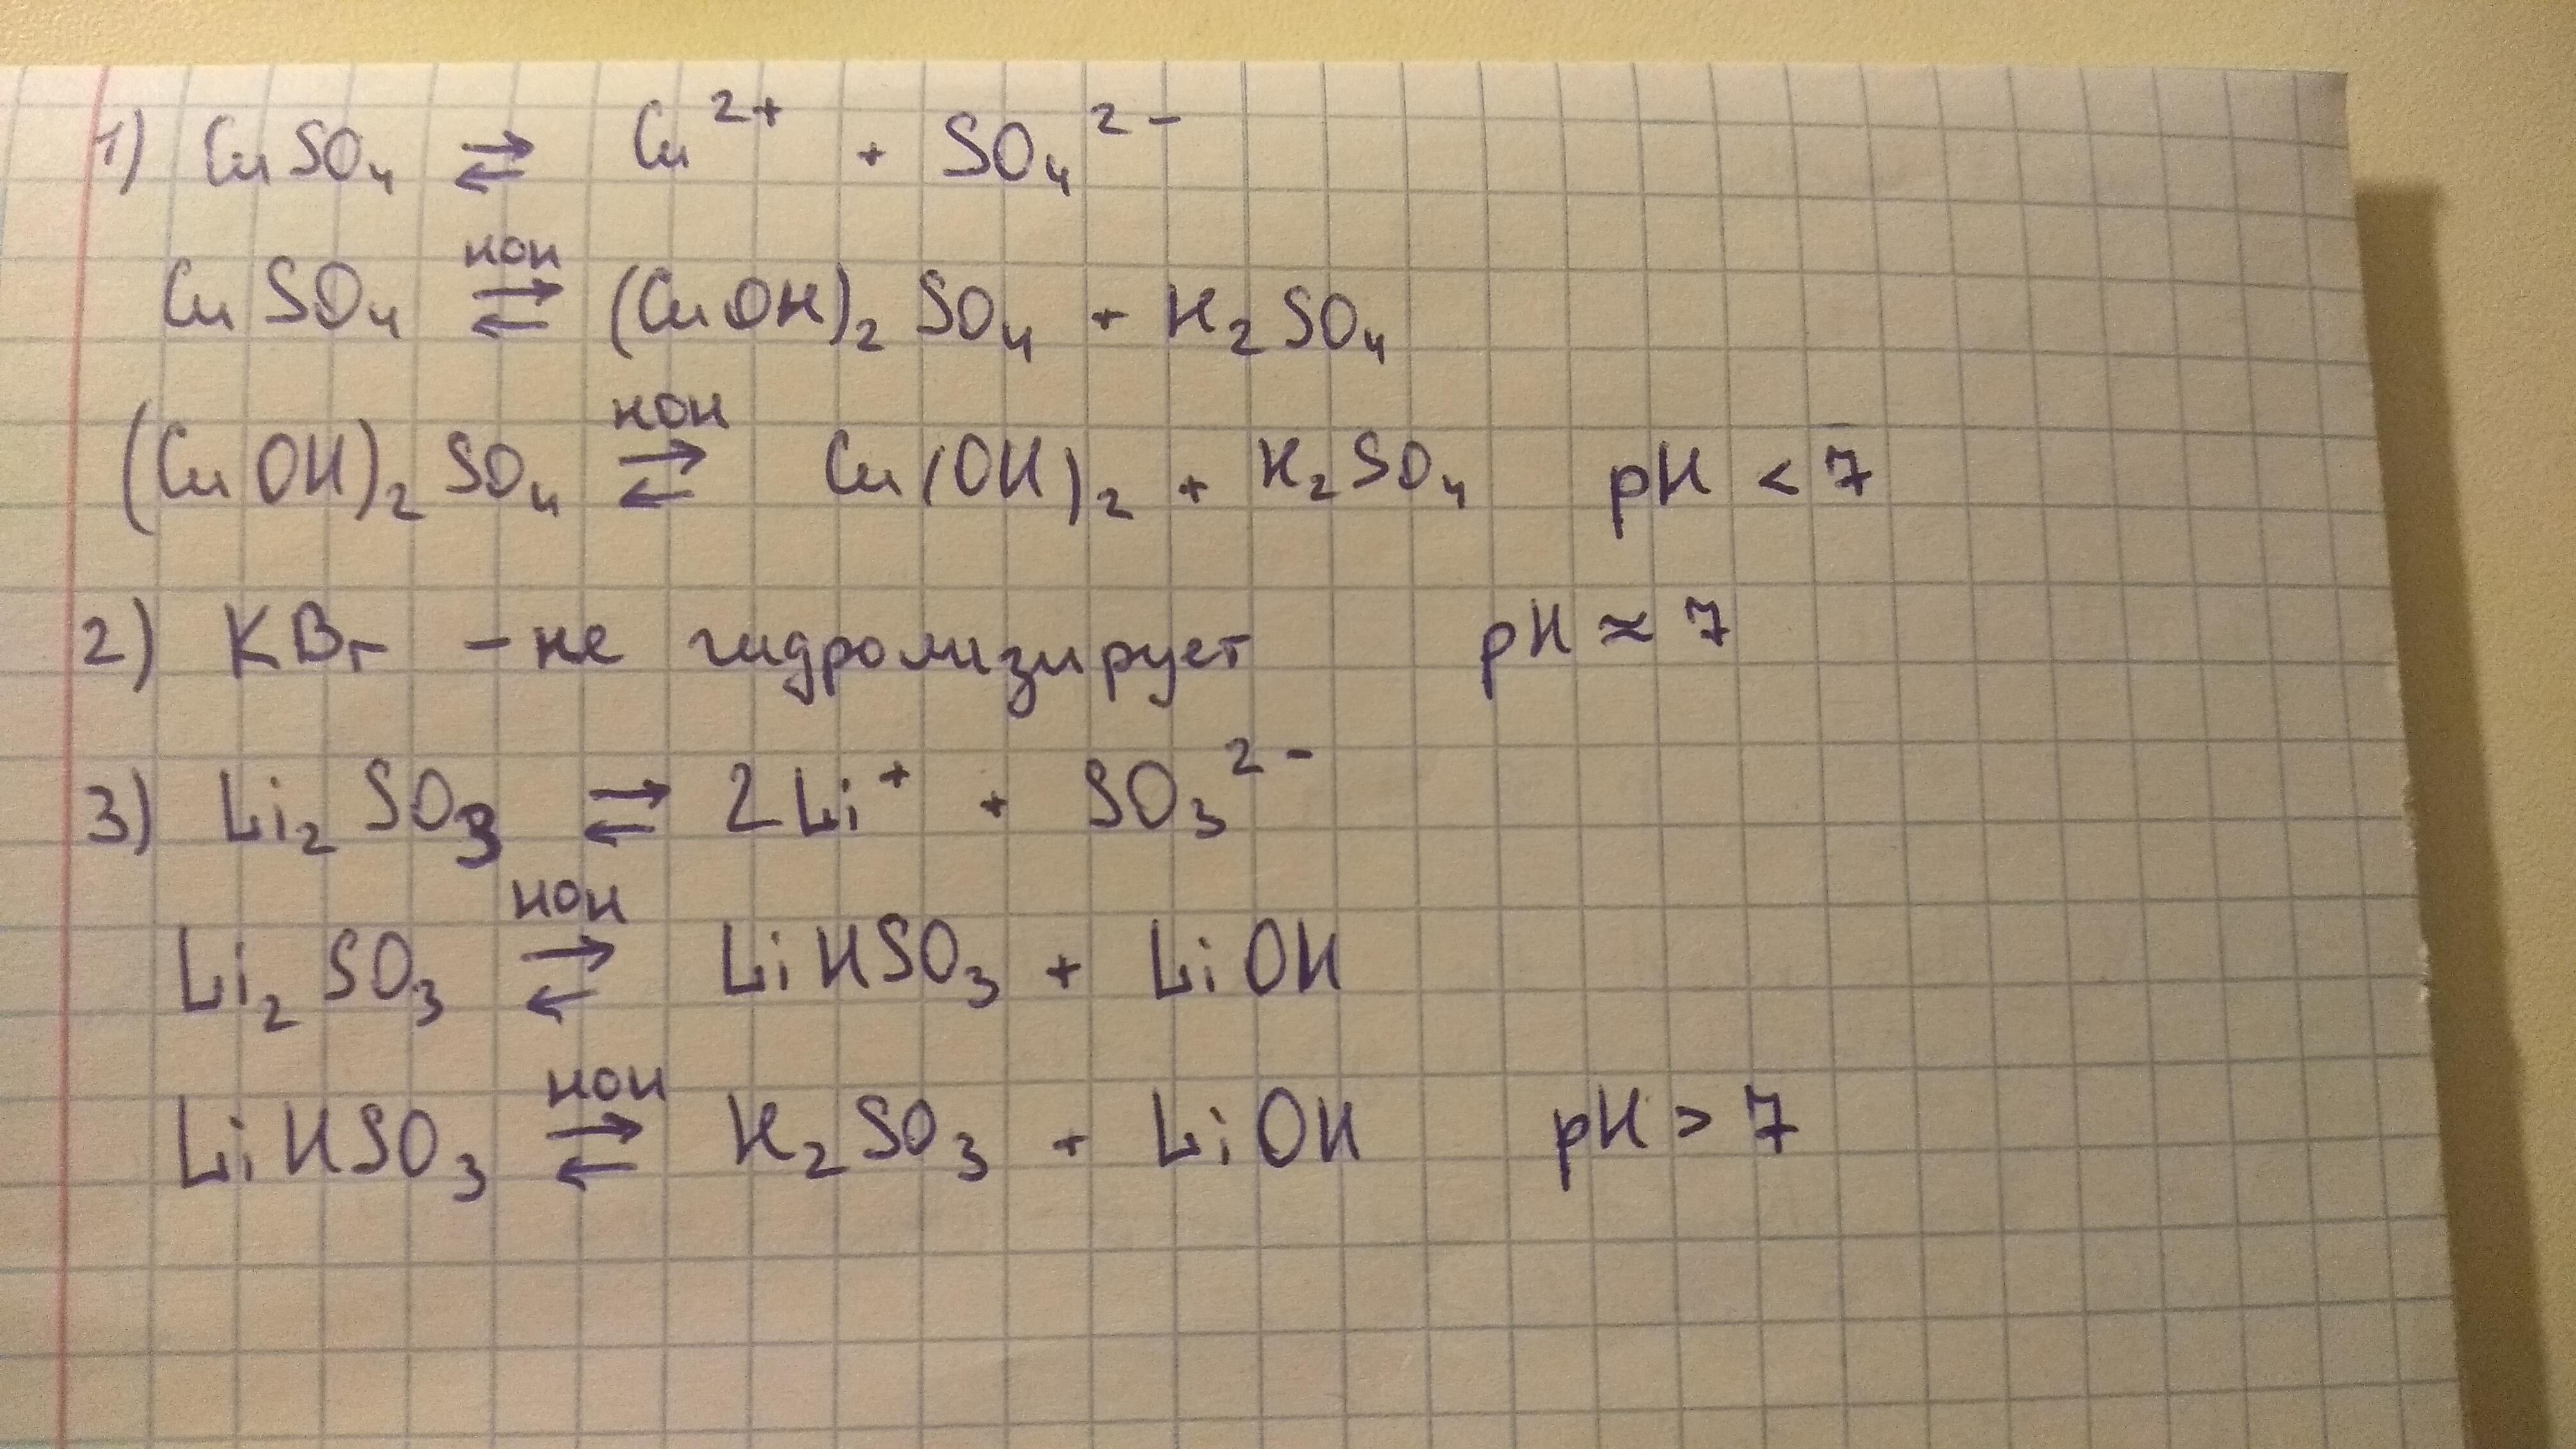 1) CuSO₄ ⇄ Cu²⁺ + SO₄²⁻
CuSO₄ ⇄ HOH (CuOH)₂SO₄ + H₂SO₄
(CuOH)₂SO₄ ⇄ HOH Cu(OH)₂ + H₂SO₄ pH < 7
2) KBr - не гидролизирует pH ≈ 7
3) Li₂SO₃ ⇄ 2Li⁺ + SO₃²⁻
Li₂SO₃ ⇄ HOH LiHSO₃ + LiOH
LiHSO₃ ⇄ HOH H₂SO₃ + LiOH pH > 7